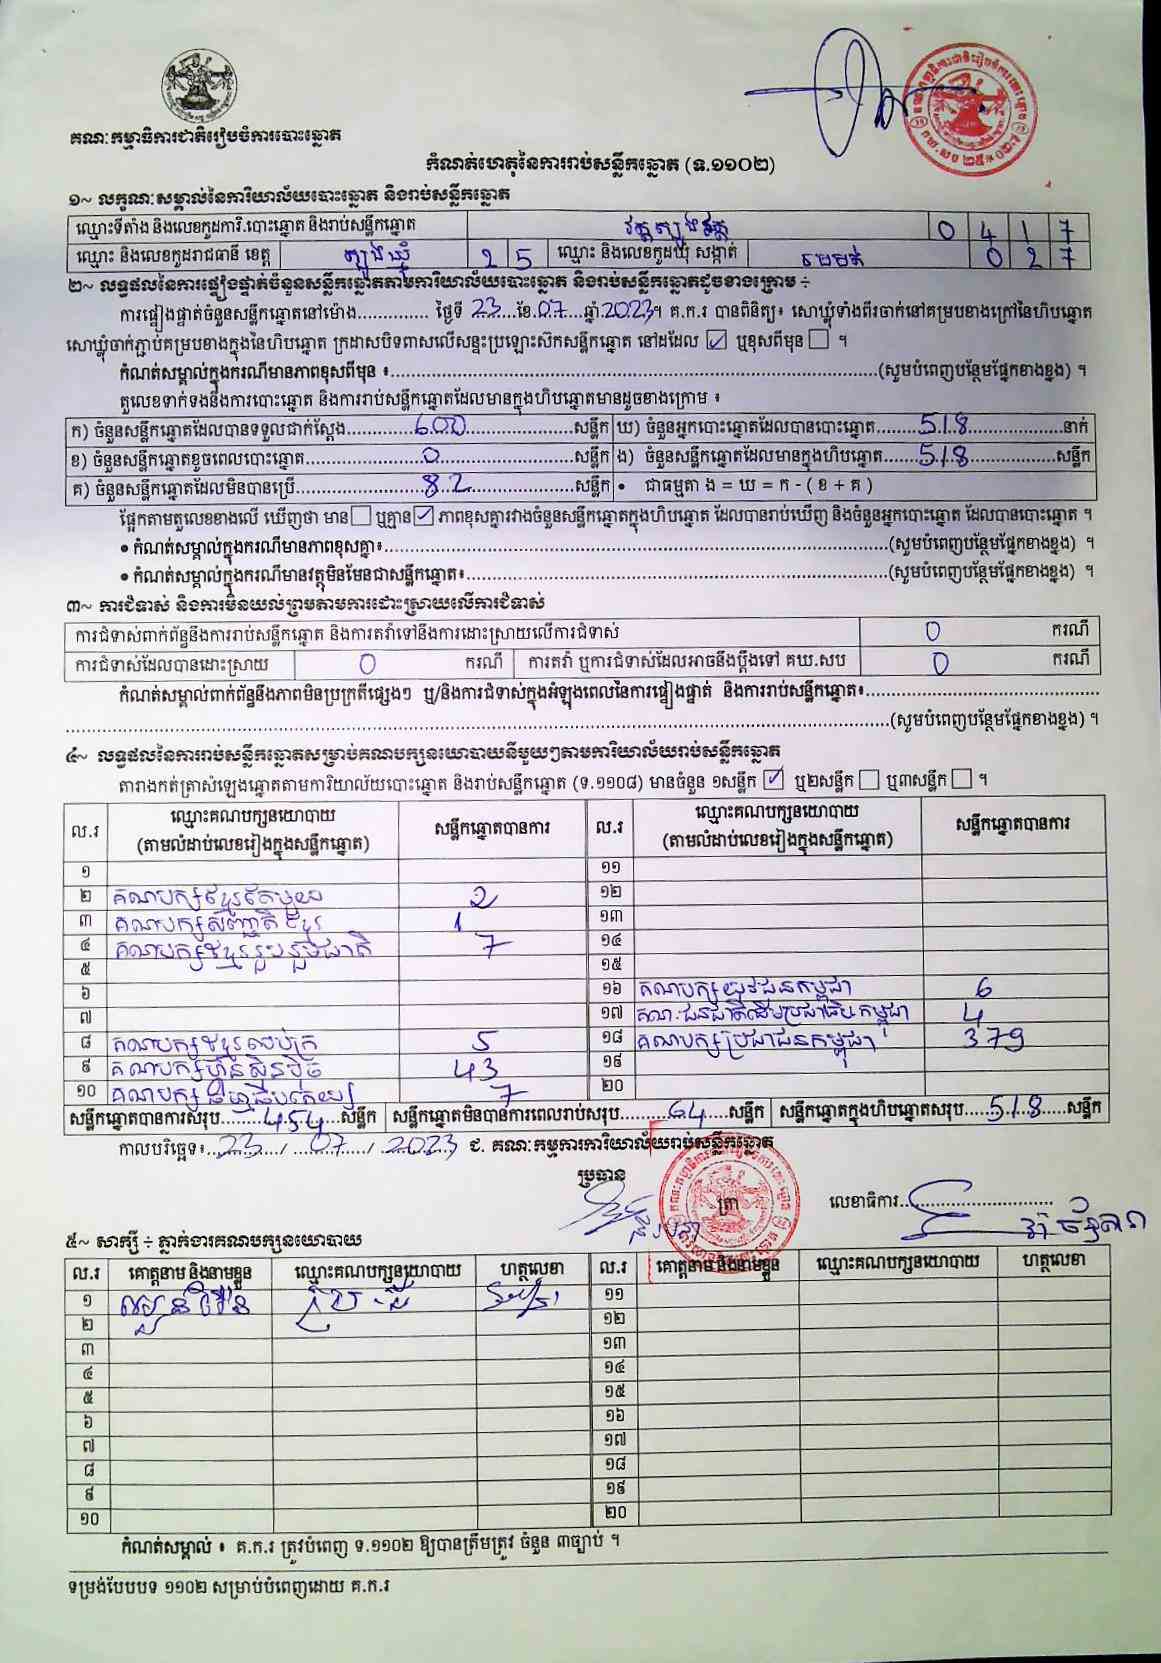 គណៈកម្មាធិការជាតិរៀបចំការបោះឆ្នោត
កំណត់ហេតុនៃការរាប់សន្លឹកឆ្នោត (ទ.១១០២)
១~ លក្ខណៈសម្គាល់នៃការិយាល័យបោះឆ្នោត និងរាប់សន្លឹកឆ្នោត
ឈ្មោះទីតាំង និងលេខកូដការិ.បោះឆ្នោត និងរាប់សន្លឹកឆ្នោត 0 4 1 7
ឈ្មោះ និងលេខកូដរាជធានី ខេត្ត ត្បូងឃ្មុំ 2 5 ឈ្មោះ និងលេខកូដឃុំ សង្កាត់ មេមត់ 0 2 7
២~ លទ្ធផលនៃការផ្ទៀងផ្ទាត់ចំនួនសន្លឹកឆ្នោតតាមការិយាល័យបោះឆ្នោត និងរាប់សន្លឹកឆ្នោតដូចខាងក្រោម ÷
ការផ្ទៀងផ្ទាត់ចំនួនសន្លឹកឆ្នោតនៅម៉ោង.............. ថ្ងៃទី 23 ខែ 07 ឆ្នាំ 2023។ គ.ក.រ បានពិនិត្យ៖ សោឃ្លុំទាំងពីរចាក់នៅគម្របខាងក្រៅនៃហិបឆ្នោត
សោឃ្លុំចាក់ភ្ជាប់គម្របខាងក្នុងនៃហិបឆ្នោត ក្រដាសបិទពាសលើសន្ទះប្រឡោះស៊កសន្លឹកឆ្នោត នៅដដែល ☑ ឬខុសពីមុន ☐ ។
កំណត់សម្គាល់ក្នុងករណីមានភាពខុសពីមុន ៖..............(សូមបំពេញបន្ថែមផ្នែកខាងខ្នង) ។
តួលេខទាក់ទងនឹងការបោះឆ្នោត និងការរាប់សន្លឹកឆ្នោតដែលមានក្នុងហិបឆ្នោតមានដូចខាងក្រោម ៖
ក) ចំនួនសន្លឹកឆ្នោតដែលបានទទួលជាក់ស្តែង 600 សន្លឹក ឃ) ចំនួនអ្នកបោះឆ្នោតដែលបានបោះឆ្នោត 518 នាក់
ខ) ចំនួនសន្លឹកឆ្នោតខូចពេលបោះឆ្នោត 0 សន្លឹក ង) ចំនួនសន្លឹកឆ្នោតដែលមានក្នុងហិបឆ្នោត 518 សន្លឹក
គ) ចំនួនសន្លឹកឆ្នោតដែលមិនបានប្រើ 82 សន្លឹក • ជាធម្មតា ង = ឃ = ក - ( ខ + គ )
ផ្អែកតាមតួលេខខាងលើ ឃើញថា មាន ☐ ឬគ្មាន ☑ ភាពខុសគ្នារវាងចំនួនសន្លឹកឆ្នោតក្នុងហិបឆ្នោត ដែលបានរាប់ឃើញ និងចំនួនអ្នកបោះឆ្នោត ដែលបានបោះឆ្នោត ។
• កំណត់សម្គាល់ក្នុងករណីមានភាពខុសគ្នា៖..............(សូមបំពេញបន្ថែមផ្នែកខាងខ្នង) ។
• កំណត់សម្គាល់ក្នុងករណីមានវត្ថុមិនមែនជាសន្លឹកឆ្នោត៖..............(សូមបំពេញបន្ថែមផ្នែកខាងខ្នង) ។
៣~ ការជំទាស់ និងការមិនយល់ព្រមតាមការដោះស្រាយលើការជំទាស់
ការជំទាស់ពាក់ព័ន្ធនឹងការរាប់សន្លឹកឆ្នោត និងការតវ៉ាទៅនឹងការដោះស្រាយលើការជំទាស់ 0 ករណី
ការជំទាស់ដែលបានដោះស្រាយ 0 ករណី ការតវ៉ា ឬការជំទាស់ដែលអាចនឹងប្តឹងទៅ គឃ.សប 0 ករណី
កំណត់សម្គាល់ពាក់ព័ន្ធនឹងភាពមិនប្រក្រតីផ្សេងៗ ឬ/និងការជំទាស់ក្នុងអំឡុងពេលនៃការផ្ទៀងផ្ទាត់ និងការរាប់សន្លឹកឆ្នោត៖..............
..............(សូមបំពេញបន្ថែមផ្នែកខាងខ្នង) ។
៤~ លទ្ធផលនៃការរាប់សន្លឹកឆ្នោតសម្រាប់គណបក្សនយោបាយនីមួយៗតាមការិយាល័យរាប់សន្លឹកឆ្នោត
តារាងកត់ត្រាសំឡេងឆ្នោតតាមការិយាល័យបោះឆ្នោត និងរាប់សន្លឹកឆ្នោត (ទ.១១០៨) មានចំនួន ១សន្លឹក ☑ ឬ២សន្លឹក ☐ ឬ៣សន្លឹក ☐ ។
ល.រ ឈ្មោះគណបក្សនយោបាយ (តាមលំដាប់លេខរៀងក្នុងសន្លឹកឆ្នោត) សន្លឹកឆ្នោតបានការ ល.រ ឈ្មោះគណបក្សនយោបាយ (តាមលំដាប់លេខរៀងក្នុងសន្លឹកឆ្នោត) សន្លឹកឆ្នោតបានការ
១ ១១
២ គណបក្សខ្មែរតែមួយ 2 ១២
៣ គណបក្សសញ្ជាតិខ្មែរ 1 ១៣
៤ គណបក្សខ្មែររួបរួមជាតិ 7 ១៤
៥ ១៥
៦ ១៦ គណបក្សយុវជនកម្ពុជា 6
៧ ១៧ គណៈជនជាតិដើមប្រជាធិប.កម្ពុជា 4
៨ គណបក្សខ្មែរឈប់ក្រ 5 ១៨ គណបក្សប្រជាជនកម្ពុជា 379
៩ គណបក្សហ៊្វុនស៊ិនប៉ិច 43 ១៩
១០ 7 ២០
សន្លឹកឆ្នោតបានការសរុប 454 សន្លឹក សន្លឹកឆ្នោតមិនបានការពេលរាប់សរុប 64 សន្លឹក សន្លឹកឆ្នោតក្នុងហិបឆ្នោតសរុប 518 សន្លឹក
កាលបរិច្ឆេទ៖ 23 / 07 / 2023 ជ. គណៈកម្មការការិយាល័យរាប់សន្លឹកឆ្នោត
ប្រធាន
ត្រា
លេខាធិការ
៥~ សាក្សី ÷ ភ្នាក់ងារគណបក្សនយោបាយ
ល.រ គោត្តនាម និងនាមខ្លួន ឈ្មោះគណបក្សនយោបាយ ហត្ថលេខា ល.រ គោត្តនាម និងនាមខ្លួន ឈ្មោះគណបក្សនយោបាយ ហត្ថលេខា
១ ១១
២ ១២
៣ ១៣
៤ ១៤
៥ ១៥
៦ ១៦
៧ ១៧
៨ ១៨
៩ ១៩
១០ ២០
កំណត់សម្គាល់ ៖ គ.ក.រ ត្រូវបំពេញ ទ.១១០២ ឱ្យបានត្រឹមត្រូវ ចំនួន ៣ច្បាប់ ។
ទម្រង់បែបបទ ១១០២ សម្រាប់បំពេញដោយ គ.ក.រ